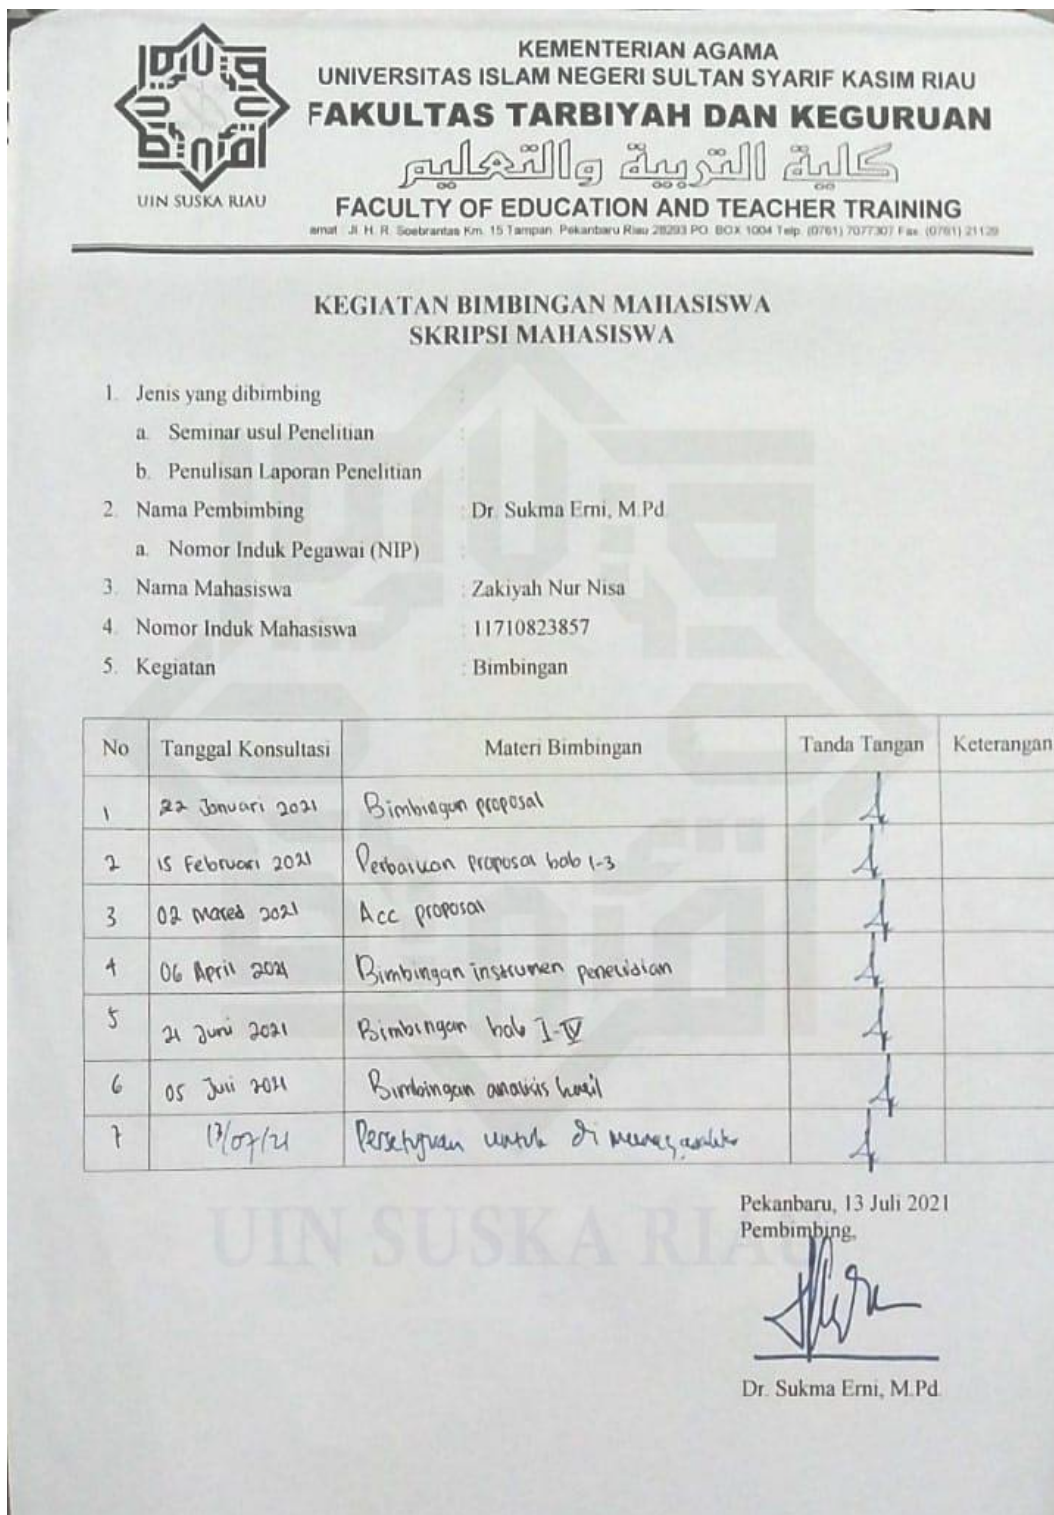 KEMENTERIAN AGAMA
UNIVERSITAS ISLAM NEGERI SULTAN SYARIF KASIM RIAU
FAKULTAS TARBIYAH DAN KEGURUAN
كلية التربية والتعليم
FACULTY OF EDUCATION AND TEACHER TRAINING
UIN SUSKA RIAU
amat : Jl. H. R. Soebrantas Km. 15 Tampan Pekanbaru Riau 28293 PO. BOX 1004 Telp. (0761) 7077307 Fax. (0761) 21129
KEGIATAN BIMBINGAN MAHASISWA
SKRIPSI MAHASISWA
1. Jenis yang dibimbing :
a. Seminar usul Penelitian :
b. Penulisan Laporan Penelitian :
2. Nama Pembimbing : Dr. Sukma Erni, M.Pd.
a. Nomor Induk Pegawai (NIP) :
3. Nama Mahasiswa : Zakiyah Nur Nisa
4. Nomor Induk Mahasiswa : 11710823857
5. Kegiatan : Bimbingan
No Tanggal Konsultasi Materi Bimbingan Tanda Tangan Keterangan
1 22 Januari 2021 Bimbingan proposal
2 15 Februari 2021 Perbaikan proposal bab 1-3
3 02 Maret 2021 Acc proposal
4 06 April 2021 Bimbingan instrumen penelitian
5 21 Juni 2021 Bimbingan bab I-IV
6 05 Juli 2021 Bimbingan analisis hasil
7 13/07/21 Persetujuan untuk di
UIN SUSKA RIAU
Pekanbaru, 13 Juli 2021
Pembimbing,
Dr. Sukma Erni, M.Pd.